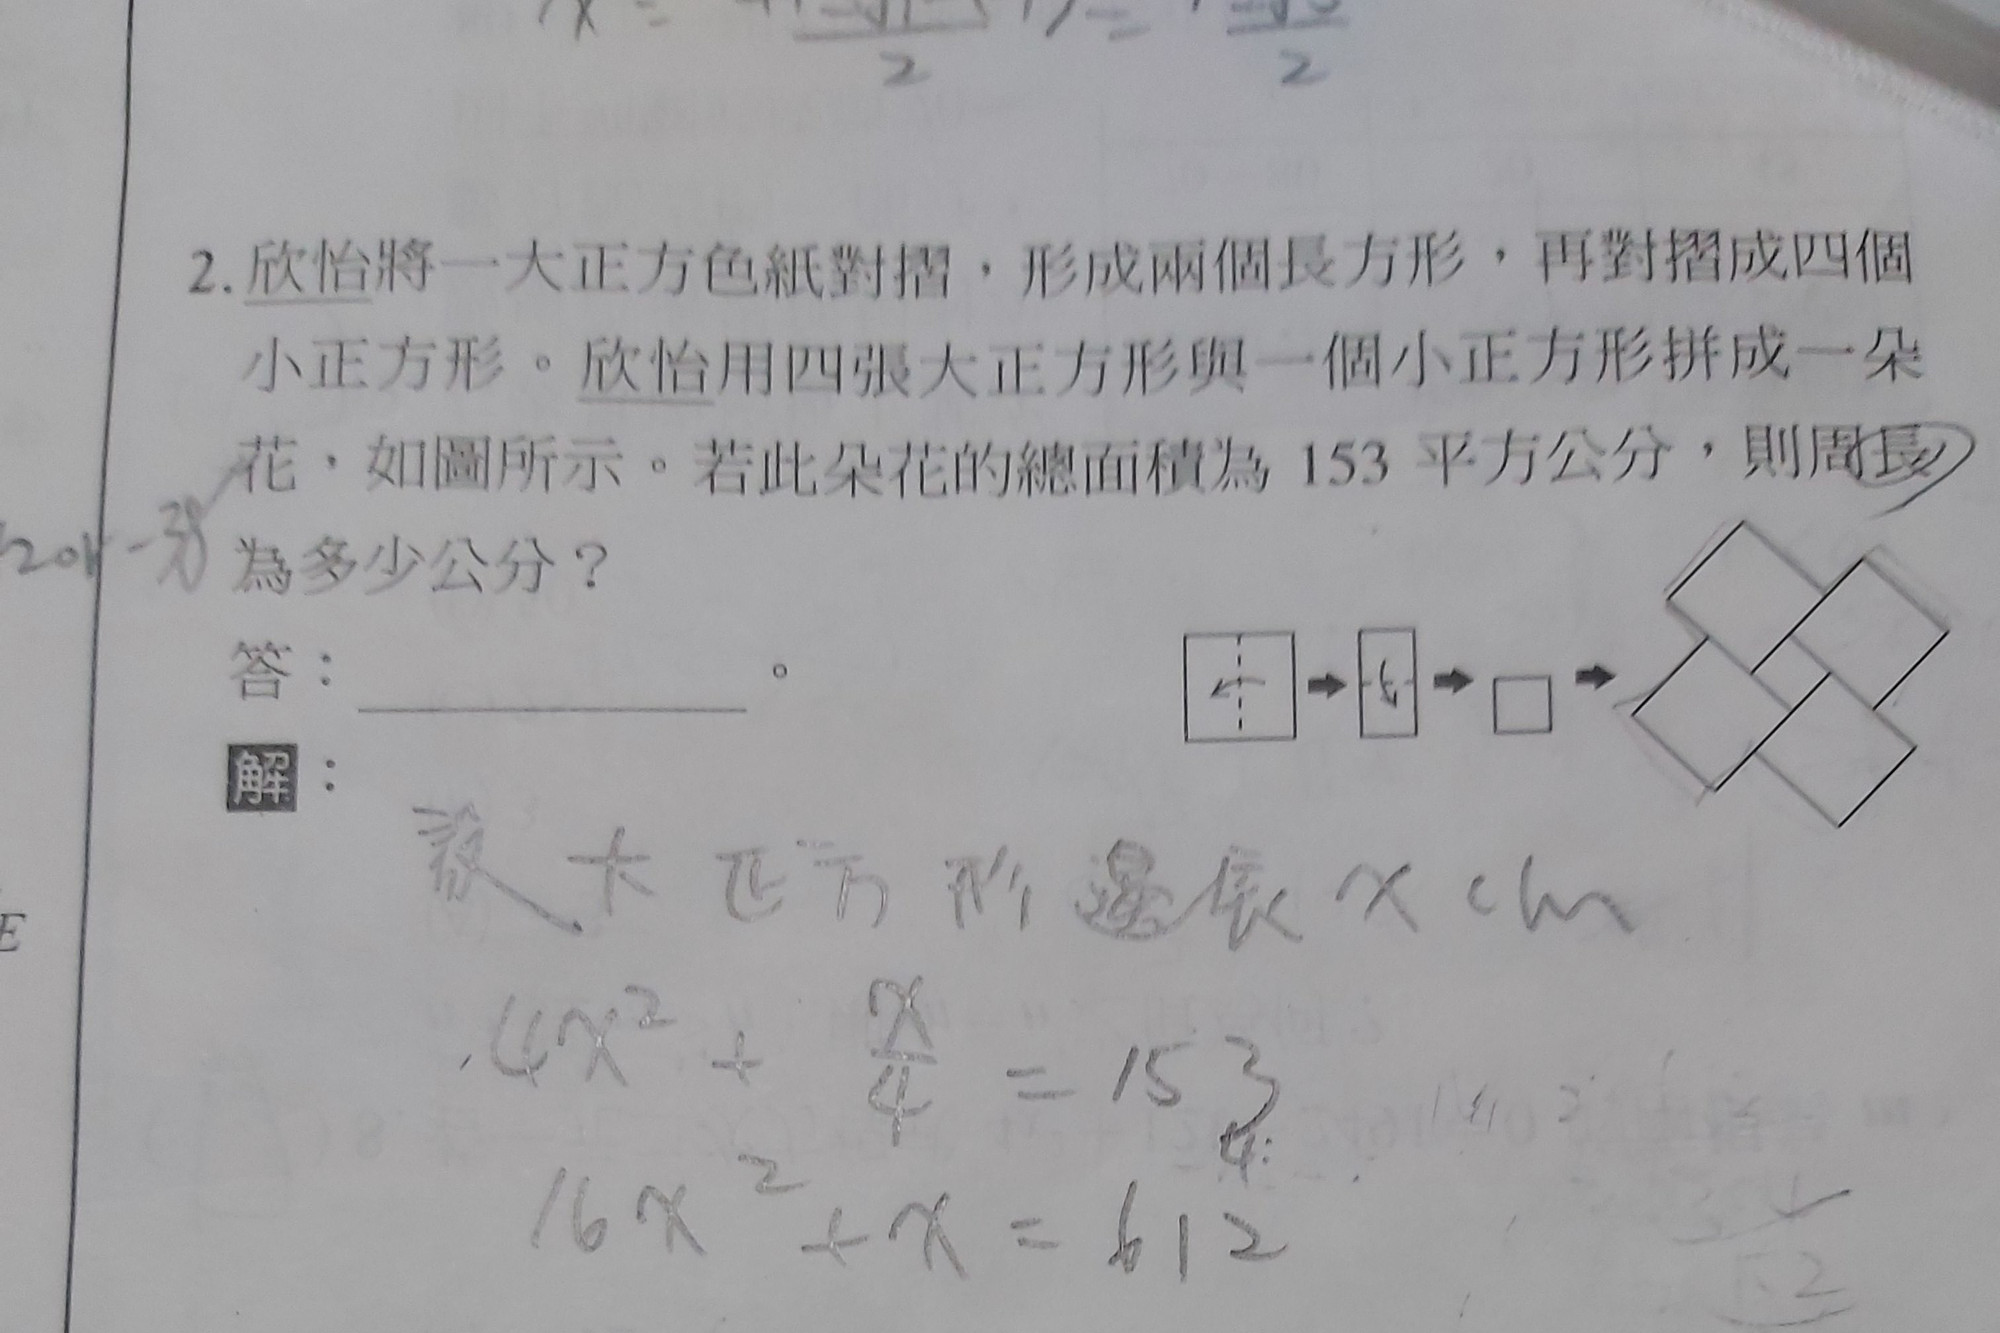 2
2
2. 欣怡將一大正方色紙對摺，形成兩個長方形，再對摺成四個
小正方形。欣怡用四張大正方形與一個小正方形拼成一朵
花，如圖所示。若此朵花的總面積為 153 平方公分，則周長
為多少公分？
答：　　　。
解：
設大正方形邊長 x cm
4x² + x/4 = 153
4
16x² + x = 612
E